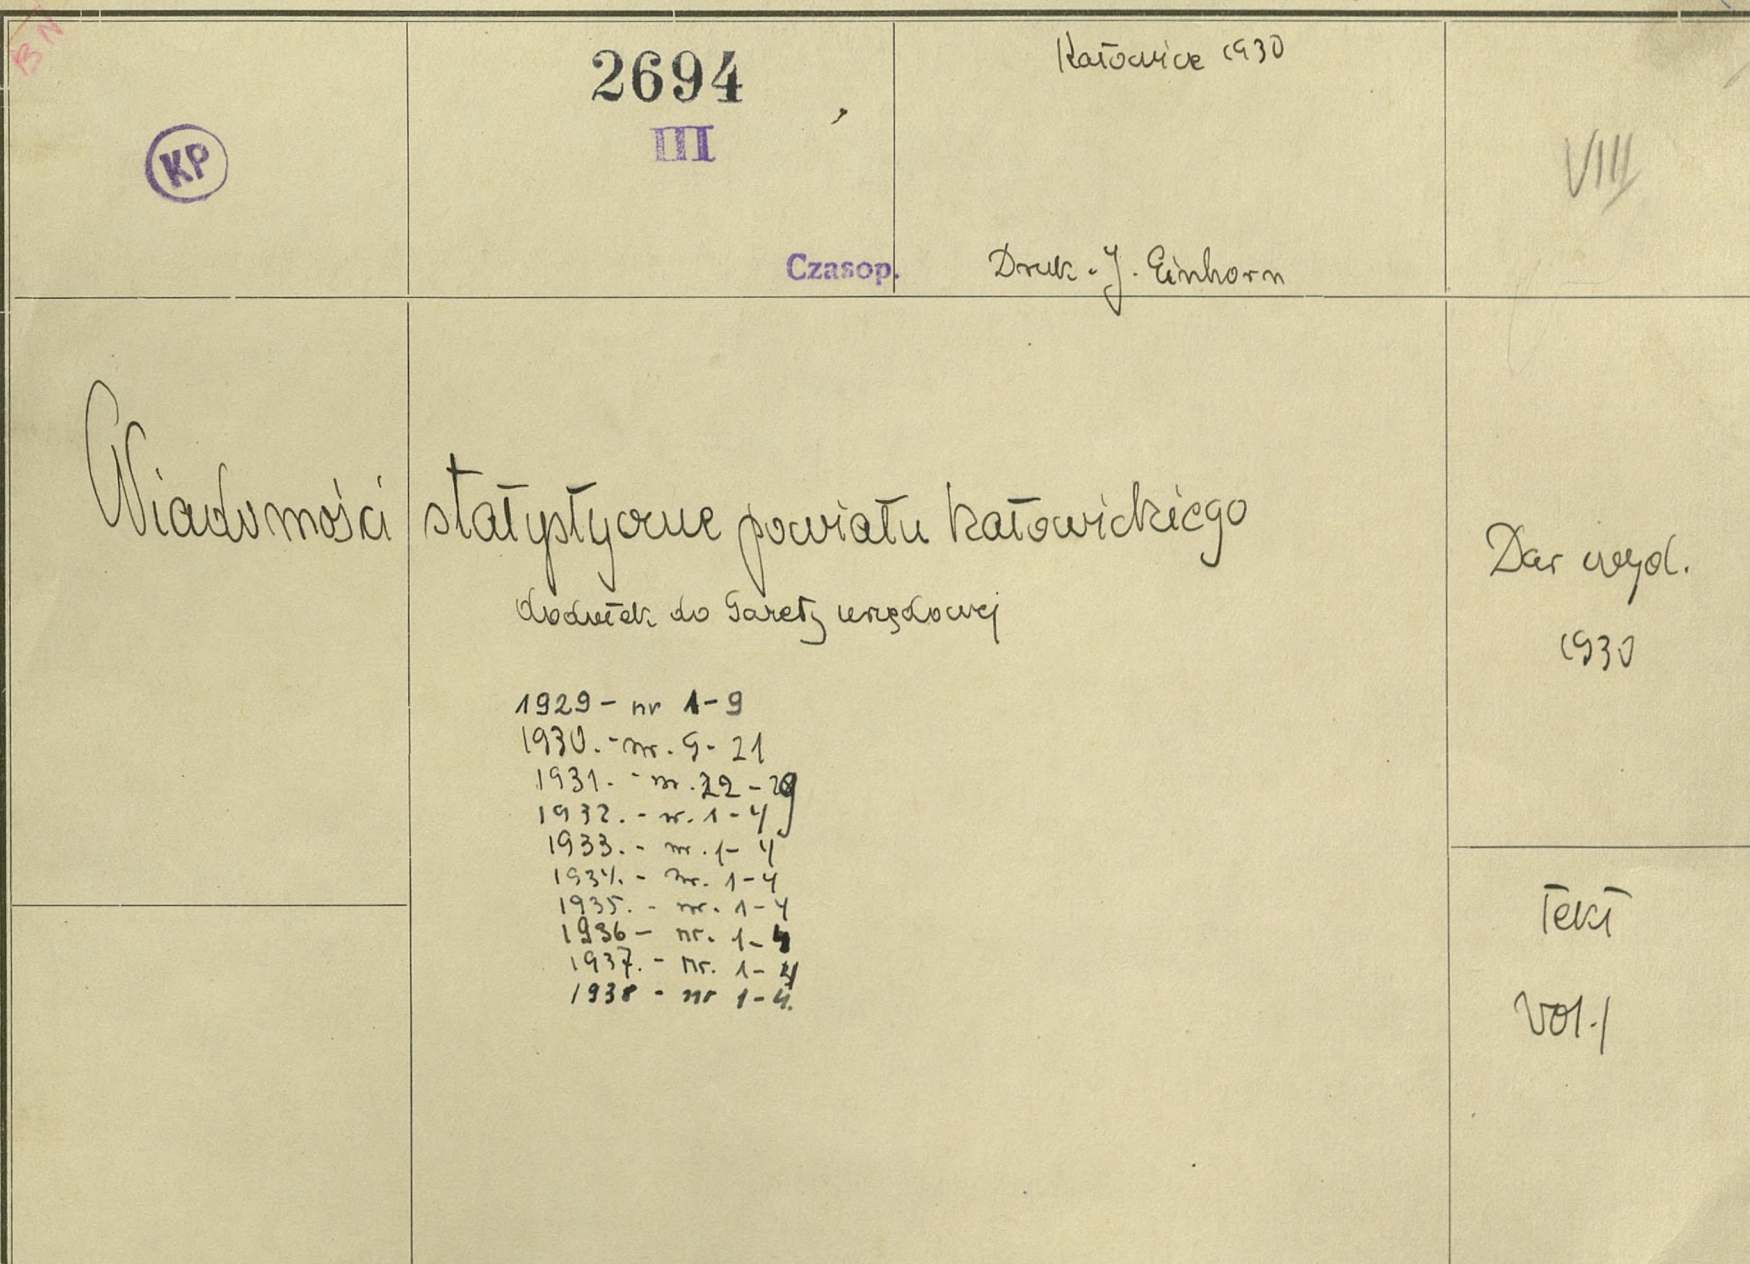 BN
KP
2694
III
Czasop.
Katowice 1930
Druk. J. Einhorn
VIII
Wiadomości statystyczne powiatu katowickiego
dodatek do Gazety urzędowej
1929 - nr 1-9
1930. - nr. 9-21
1931. - nr. 22-29
1932. - nr. 1-4
1933. - nr. 1-4
1934. - nr. 1-4
1935. - nr. 1-4
1936 - nr. 1-4
1937. - Nr. 1-4
1938 - nr 1-4.
Dar wyd.
1930
Tekt
Vol. 1